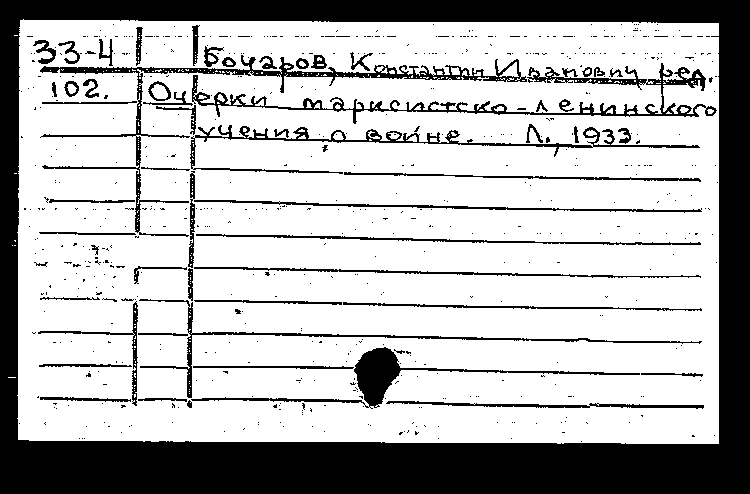 33-4 Бочаров, Константин Иванович ред.
102. Очерки марксистско-ленинского
учения о войне. Л., 1933.